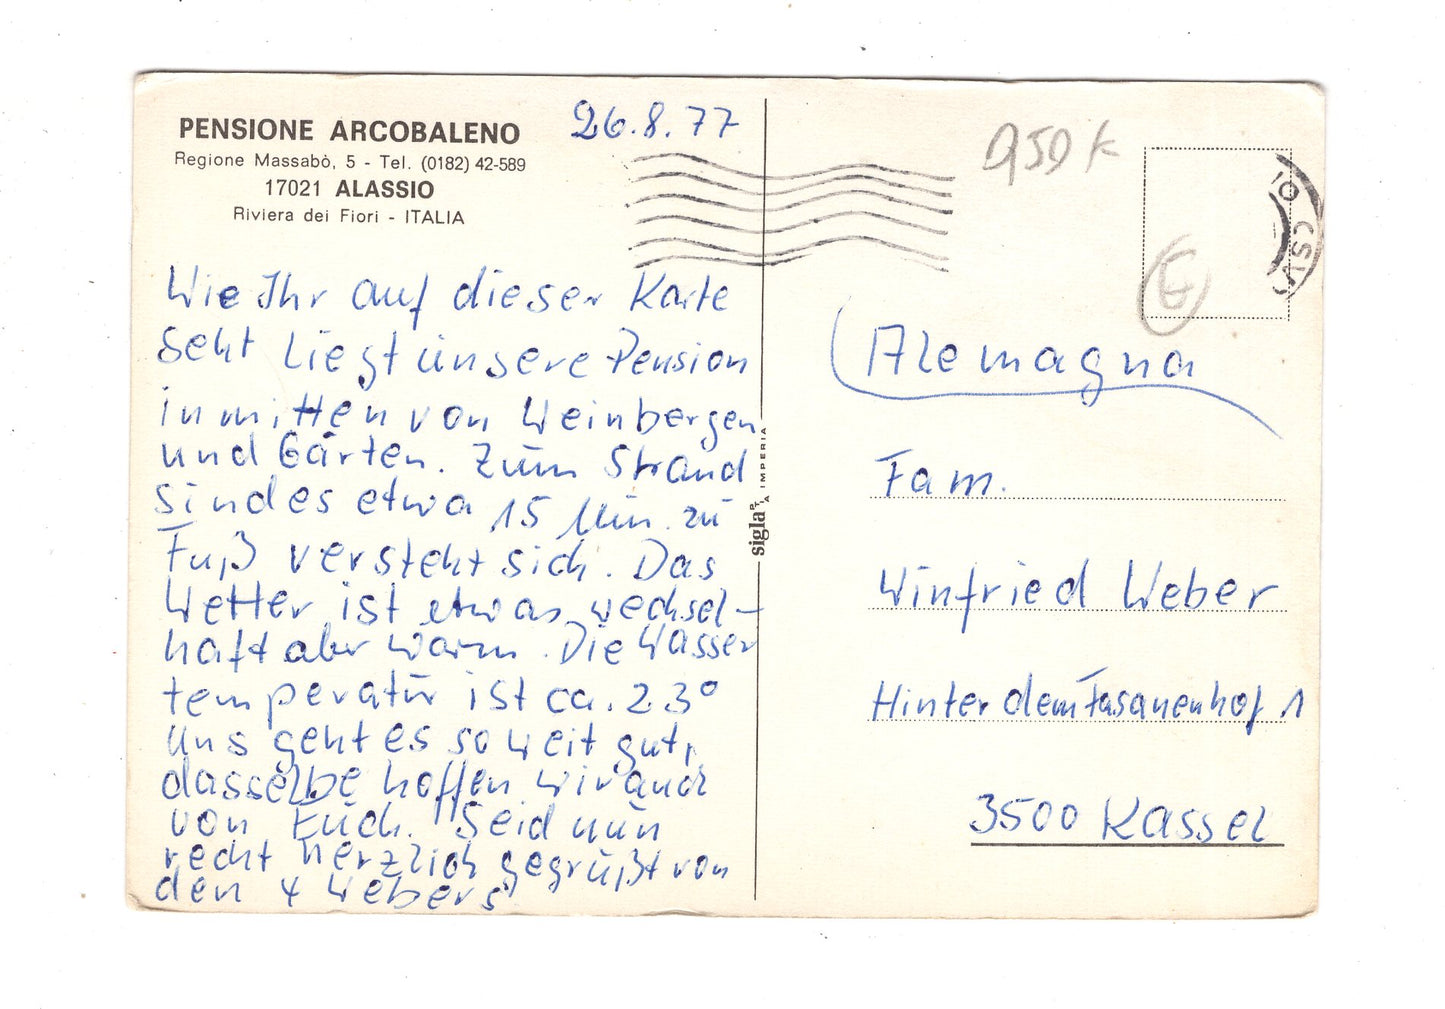 PENSIONE ARCOBALENO
Regione Massabò, 5 - Tel. (0182) 42-589
17021 ALASSIO
Riviera dei Fiori - ITALIA
26.8.77
Wie Ihr auf dieser Karte
seht liegt unsere Pension
inmitten von Weinbergen
und Gärten. Zum Strand
sind es etwa 15 Min. zu
Fuß versteht sich. Das
Wetter ist etwas wechsel-
haft aber warm. Die Wasser
temperatur ist ca. 23°
Uns geht es soweit gut,
dasselbe hoffen wir auch
von Euch. Seid nun
recht herzlich gegrüßt von
den 4 Webers
sigla
IMPERIA
950 K
G
Alemagna
Fam.
Winfried Weber
Hinter dem Fasanenhof 1
3500 Kassel